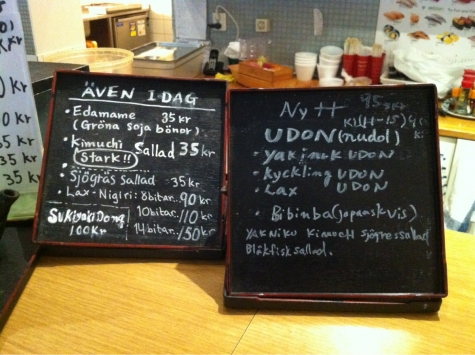 ÄVEN IDAG
• Edamame 35 kr
(Gröna soja bönor)
• Kimuchi Sallad 35 kr
(Stark!!)
• Sjögräs sallad 35 kr
• Lax-Nigiri: 8bitar. 90 kr
10bitar. 110 kr
14bitar. 150 kr
Sukiyaki Dong
100 Kr
Nytt 95 kr
Kl(11-15)
UDON (nudol)
• yakiniuk UDON
• kyckling UDON
• Lax UDON
• Bibinba (japansk vis)
YAKNIKU Kimuchi sjögressallad
Bläkfisk sallad.
35 kr